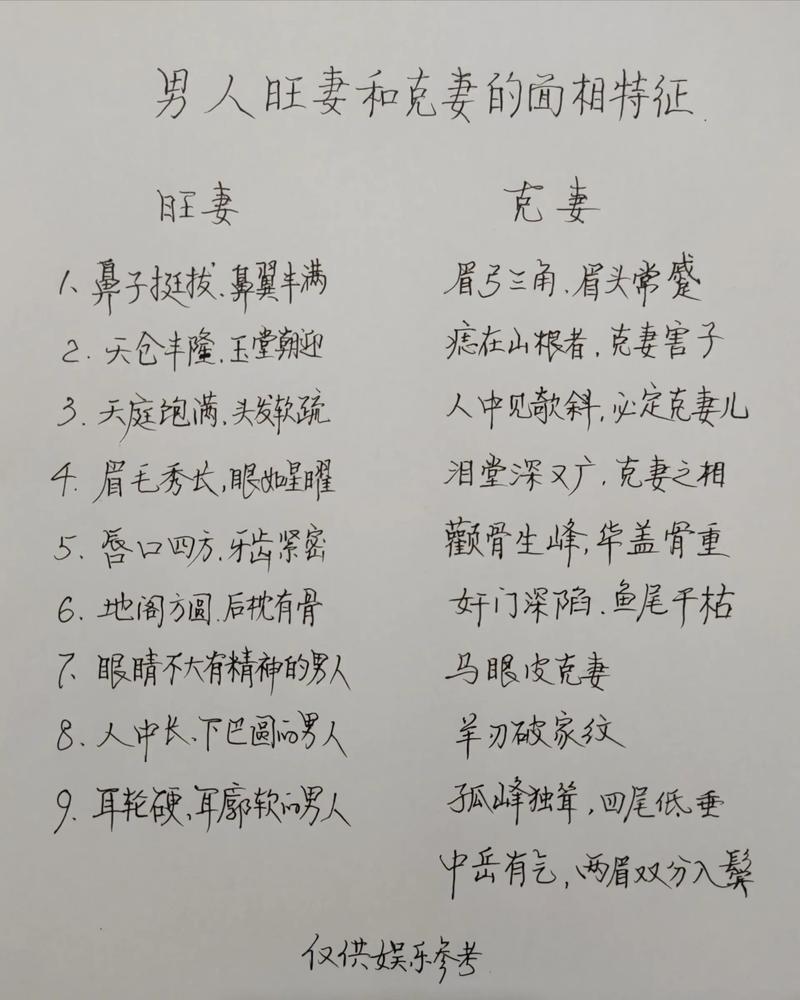 男人旺妻和克妻的面相特征
旺妻
1、鼻子挺拔、鼻翼丰满
2、天仓丰隆、玉堂朝迎
3、天庭饱满、头发软疏
4、眉毛秀长，眼如星曜
5、唇口四方、牙齿紧密
6、地阁方圆、后枕有骨
7、眼睛不大有精神的男人
8、人中长、下巴圆的男人
9、耳轮硬、耳廓软的男人
克妻
眉弓三角、眉头常蹙
痣在山根者，克妻害子
人中见欹斜，必定克妻儿
泪堂深又广，克妻之相
颧骨生峰，华盖骨重
奸门深陷、鱼尾干枯
马眼皮克妻
羊刃破家纹
孤峰独耸，四尾低垂
中岳有气，两眉双分入鬓
仅供娱乐参考